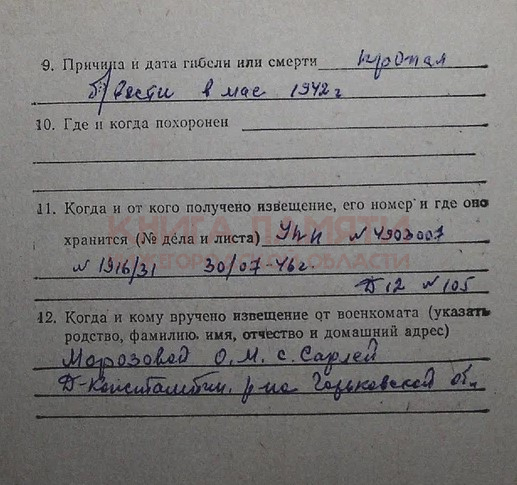 9. Причина и дата гибели или смерти пропал
б/вести в мае 1942 г
10. Где и когда похоронен
11. Когда и от кого получено извещение, его номер и где оно
КНИГА ПАМЯТИ
хранится (№ дела и листа) УПП № 4903007
НИЖЕГОРОДСКОЙ ОБЛАСТИ
№ 1916/31 30/07-46г.
Д 12 № 105
12. Когда и кому вручено извещение от военкомата (указать
родство, фамилию, имя, отчество и домашний адрес)
Морозовой О.М. с. Сарлей
Д-Константин. р-на Горьковской об